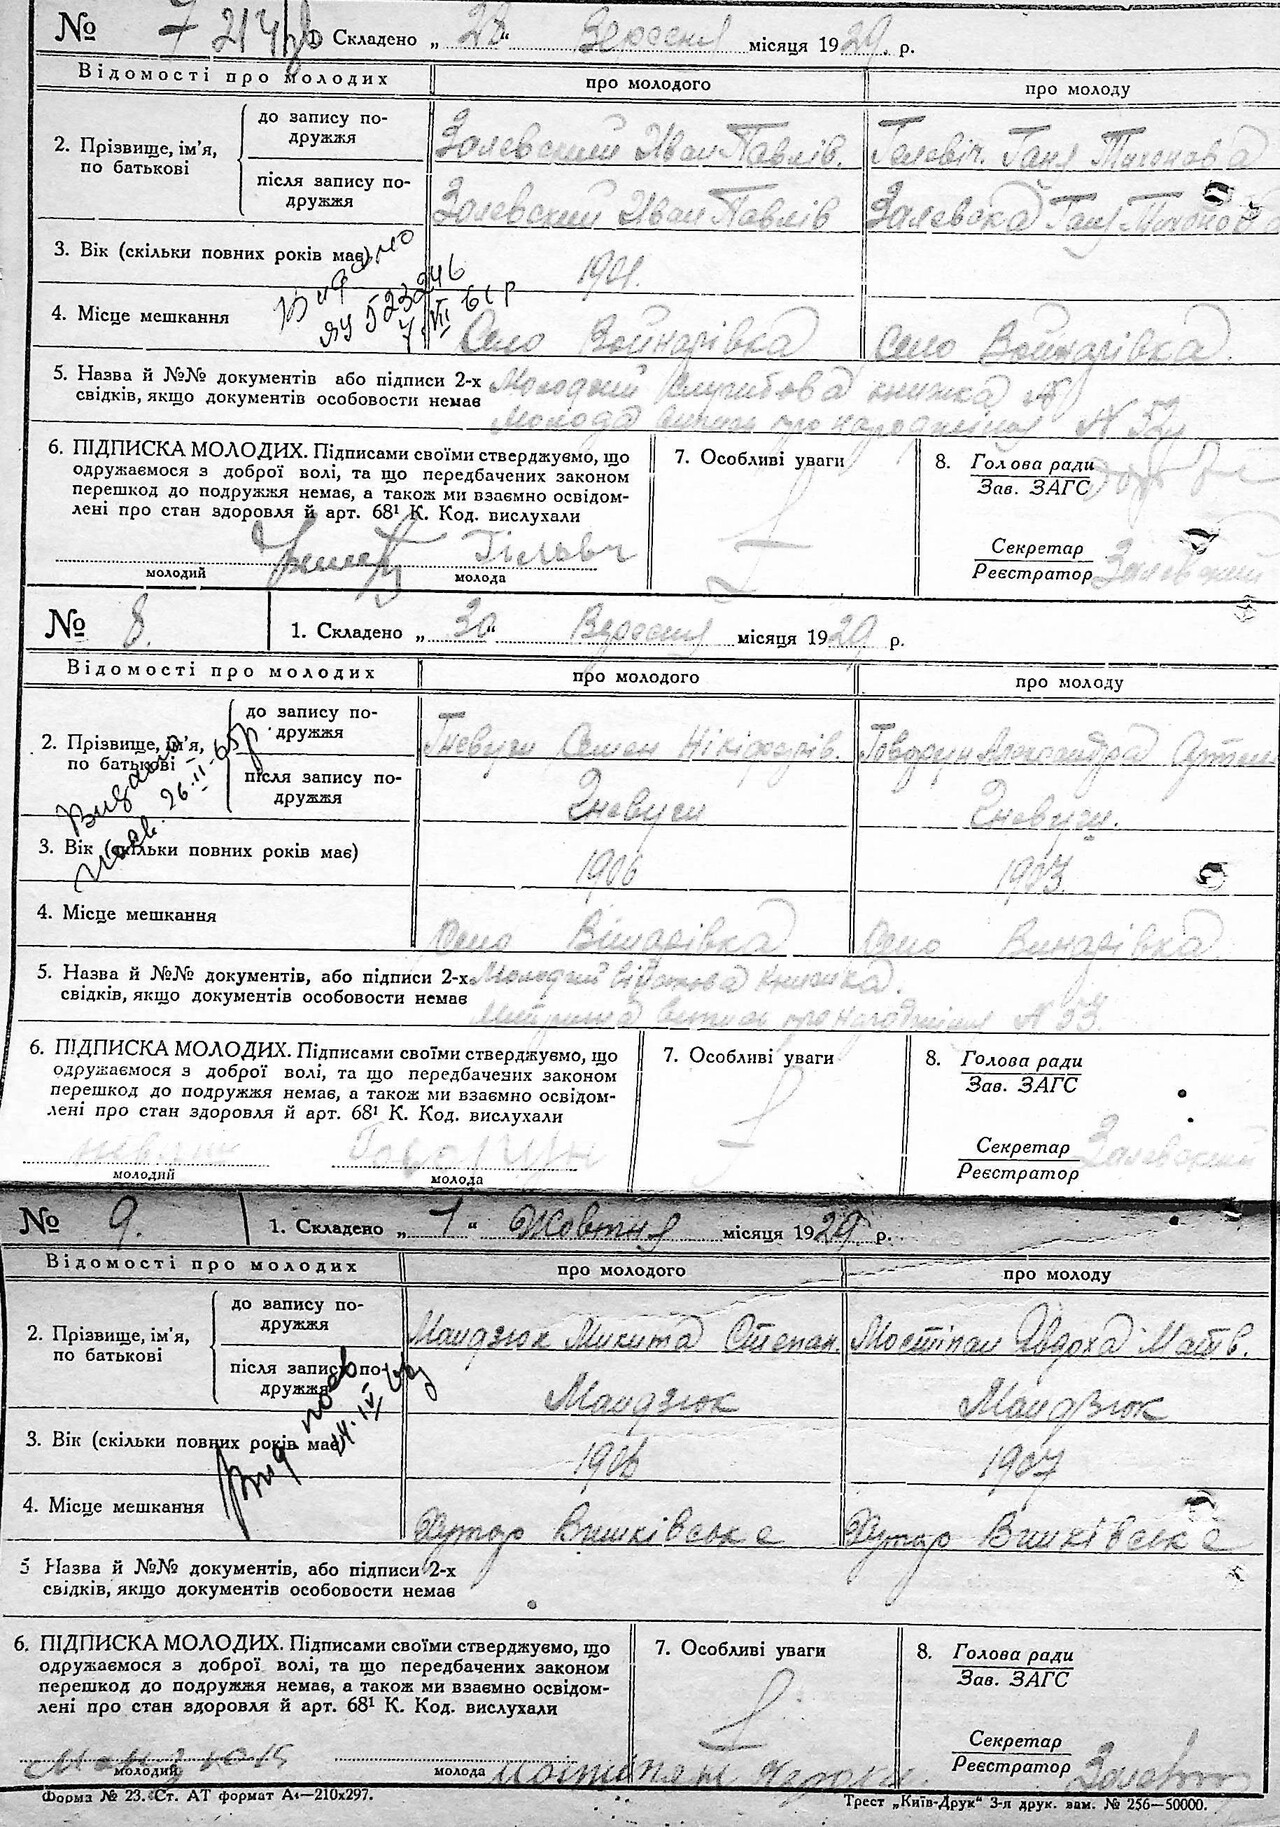 № 7 1. Складено „28“ Вересня місяця 1929 р.
Відомості про молодих про молодого про молоду
2. Прізвище, ім'я, по батькові
до запису подружжя Залевский Иван Павлів. Ганя Тихонова
після запису подружжя Залевский Иван Павлів Залевска
3. Вік (скільки повних років має) 1901.
Видано
ЯУ 523246
7 VII 61 р
4. Місце мешкання Село Войнарівка Село Войнарівка.
5. Назва й №№ документів або підписи 2-х Молодий Службова книжка №
свідків, якщо документів особовости немає Молода випис про народження № 52
6. ПІДПИСКА МОЛОДИХ. Підписами своїми стверджуємо, що
одружаємося з доброї волі, та що передбачених законом
перешкод до подружжя немає, а також ми взаємно освідом-
лені про стан здоров'я й арт. 68¹ К. Код. вислухали
7. Особливі уваги
8. Голова ради
Зав. ЗАГС
Секретар
Реєстратор Залевский
молодий молода
№ 8. 1. Складено „30“ Вересня місяця 1929 р.
Відомості про молодих про молодого про молоду
2. Прізвище, ім'я, по батькові
до запису подружжя Семен Нікіфорів. Александра
після запису подружжя
Видано
26·II-65р
3. Вік (скільки повних років має) 1906 1903
4. Місце мешкання Село Винарівка Село Винарівка
5. Назва й №№ документів, або підписи 2-х Молодий книжка.
свідків, якщо документів особовости немає випис про народження № 53
6. ПІДПИСКА МОЛОДИХ. Підписами своїми стверджуємо, що
одружаємося з доброї волі, та що передбачених законом
перешкод до подружжя немає, а також ми взаємно освідом-
лені про стан здоровля й арт. 68¹ К. Код. вислухали
7. Особливі уваги
8. Голова ради
Зав. ЗАГС
Секретар
Реєстратор Залевский
молодий молода
№ 9. 1. Складено „1“ Жовтня місяця 1929 р.
Відомості про молодих про молодого про молоду
2. Прізвище, ім'я, по батькові
до запису подружжя Мандзюк Микита Степан. Мостіпан Явдоха Матв.
після запису подружжя Мандзюк Мандзюк
3. Вік (скільки повних років має) 1906 1907
4. Місце мешкання Хутор Вишківське Хутор Вишківське
5 Назва й №№ документів, або підписи 2-х
свідків, якщо документів особовости немає
6. ПІДПИСКА МОЛОДИХ. Підписами своїми стверджуємо, що
одружаємося з доброї волі, та що передбачених законом
перешкод до подружжя немає, а також ми взаємно освідом-
лені про стан здоровля й арт. 68¹ К. Код. вислухали
7. Особливі уваги
8. Голова ради
Зав. ЗАГС
Секретар
Реєстратор
Мандзюк
молодий молода мостіпан
Форма № 23. Ст. АТ формат А4—210х297. Трест „Київ-Друк“ 3-я друк. вам. № 256—50000.